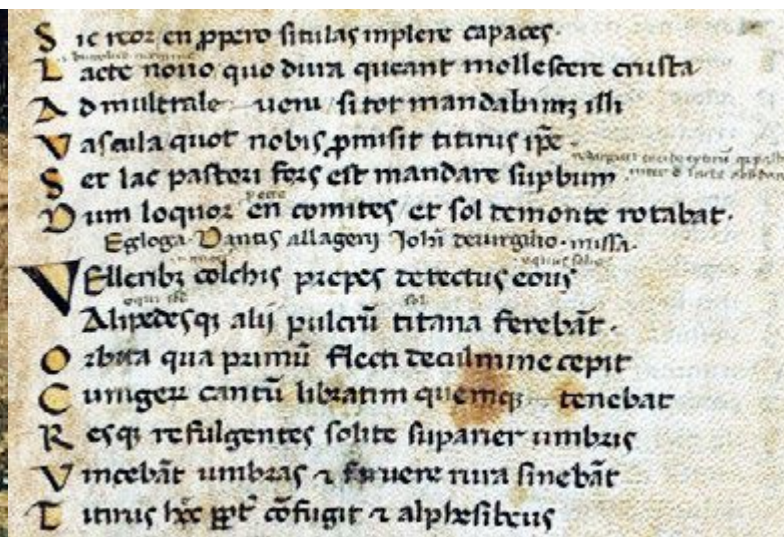 Sic reor en ꝓpero situlas inplere capaces·
Lacte nouo quo dura queant mollescere crusta
Ad multrale ueru si tot mandabimꝫ illi
Vascula quot nobis ꝓmisit titirus ip̄e ·
Set lac pastori fors est mandare suꝑbum
Dum loquor en comites et sol demonte rotabat·
Egloga Dantis allagerij Joh̄i deuirgilio· missa·
Velleribꝫ colchis prepes detectus eous
sol
Alipedesqꝫ alij pulcrū titana ferebāt·
Orbita qua primū flecti deculmine cepit
Currigerū cantū libratim quemqꝫ tenebat
Resqꝫ refulgentes solite suꝑarier umbris
Vincebāt umbras ⁊ feruere rura sinebāt
Titirus hec ꝓpt' cōfugit ⁊ alphesibeus